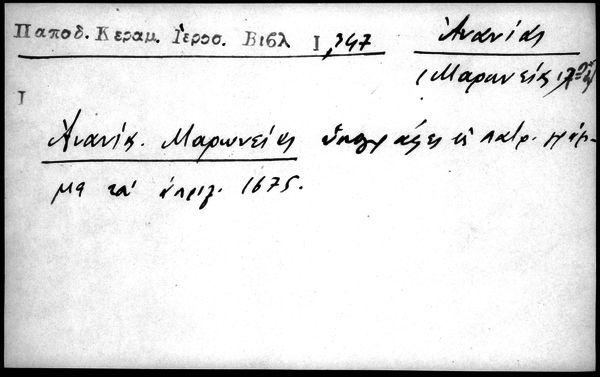 Παποδ. Κεραμ. Ἱεροσ. Βιβλ I, 347
Ἀνανίας
(Μαρωνείας
I
Ἀνανίας Μαρωνείας ὑπογράφει εἰς πατρ. γράμ-
μα τῷ ἀπριλ. 1675.